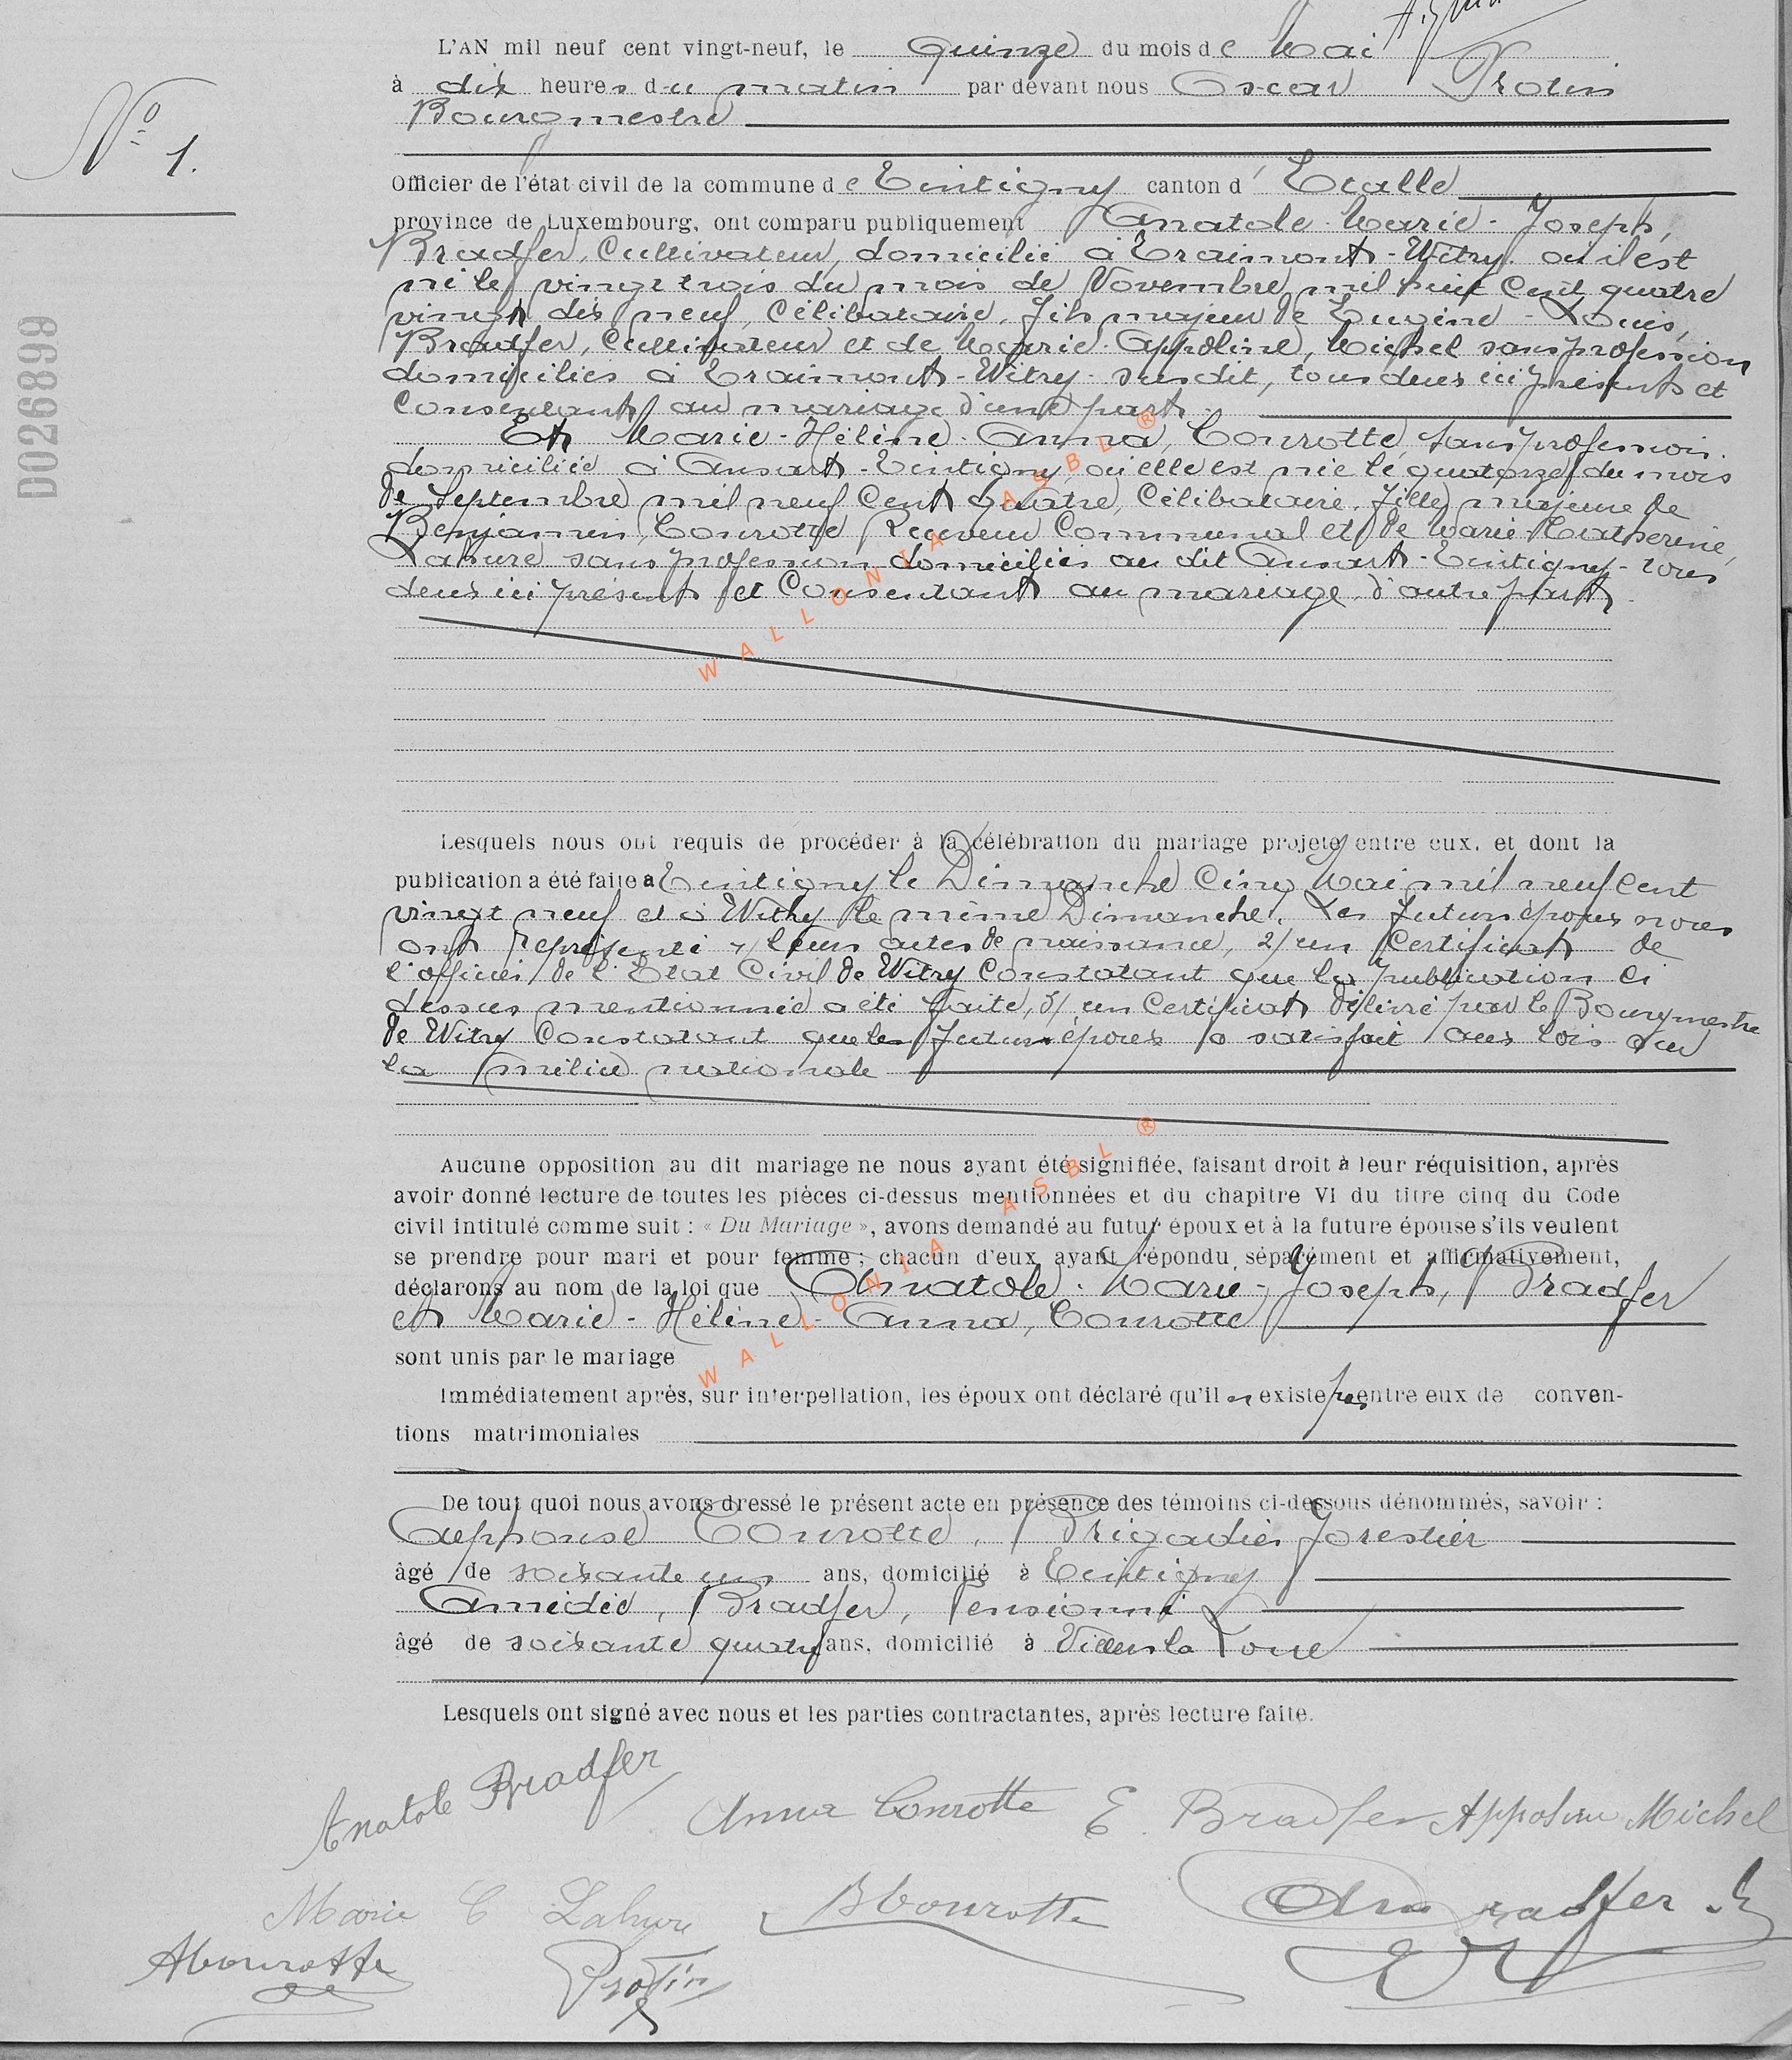 L'AN mil neuf cent vingt-neuf, le quinze du mois de Mai
à dix heures du matin par devant nous Oscar Protin
Bourgmestre
N° 1.
Officier de l'état civil de la commune de Tintigny canton d' Etalle
province de Luxembourg, ont comparu publiquement Anatole-Marie-Joseph,
Bradfer, Cultivateur, domicilié à Traimont-Witry où il est
né le vingt trois du mois de Novembre mil huit cent quatre
vingt dix neuf, Célibataire, fils majeur de Eugène-Louis,
Bradfer, Cultivateur et de Marie-Appoline, Michel sans profession
domiciliés à Traimont-Witry-susdit, tous deux ici présents et
Consentants au mariage d'une part.
Et Marie-Hélène-Anna, Conrotte, sans profession.
domiciliée à Ansart-Tintigny, où elle est née le quatorze du mois
de Septembre mil neuf Cent quatre, Célibataire, fille majeure de
Benjamin, Conrotte Receveur Communal et de Marie Catherine,
Lahure sans profession domiciliés au dit Ansart-Tintigny-tous
deux ici présents et Consentants au mariage, d'autre part.
D026899
Lesquels nous ont requis de procéder à la célébration du mariage projeté entre eux, et dont la
publication a été faite à Tintigny le Dimanche Cinq Mai mil neuf cent
vingt neuf et à Witry le même Dimanche. Les futurs époux nous
ont représenté 1/ leurs actes de naissance, 2/ un Certificat de
l'officier de l'Etat Civil de Witry Constatant que la publication ci
dessus mentionnée a été faite, 3/ un Certificat délivré par le Bourgmestre
de Witry Constatant que le futur époux a satisfait aux lois sur
la milice nationale
Aucune opposition au dit mariage ne nous ayant été signifiée, faisant droit à leur réquisition, après
avoir donné lecture de toutes les pièces ci-dessus mentionnées et du chapitre VI du titre cinq du Code
civil intitulé comme suit : « Du Mariage », avons demandé au futur époux et à la future épouse s'ils veulent
se prendre pour mari et pour femme ; chacun d'eux ayant répondu séparément et affirmativement,
déclarons au nom de la loi que Anatole-Marie-Joseph, Bradfer
et Marie-Hélène-Anna, Conrotte
sont unis par le mariage
Immédiatement après, sur interpellation, les époux ont déclaré qu'il n existe pas entre eux de conven-
tions matrimoniales
De tout quoi nous avons dressé le présent acte en présence des témoins ci-dessous dénommés, savoir :
Alphonse Conrotte, Brigadier forestier
âgé de soixante un ans, domicilié à Tintigny
Amédée, Bradfer, Pensionné
âgé de soixante quatre ans, domicilié à Villers la Loue
Lesquels ont signé avec nous et les parties contractantes, après lecture faite.
Anatole Bradfer
Anna Conrotte E. Bradfer Appoline Michel
Marie C Lahure BConrotte Am Bradfer
AConrotte Protin
WALLONIA ASBL ®
WALLONIA ASBL ®